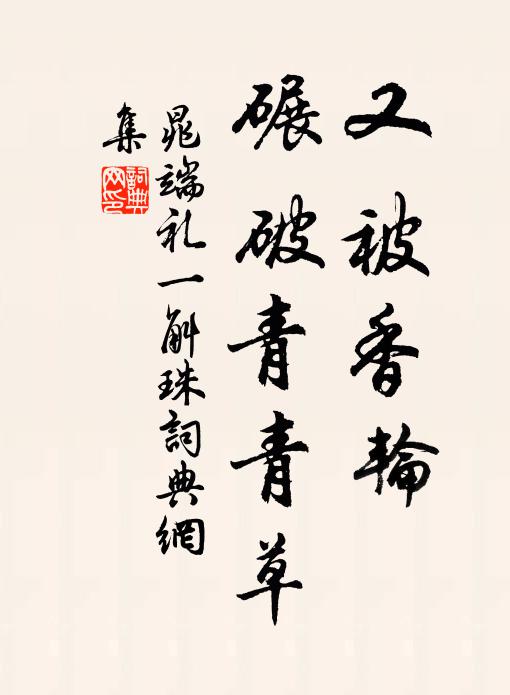 又被香輪
碾破青青草
晁端礼一斛珠詞典網
集
詞典
网印